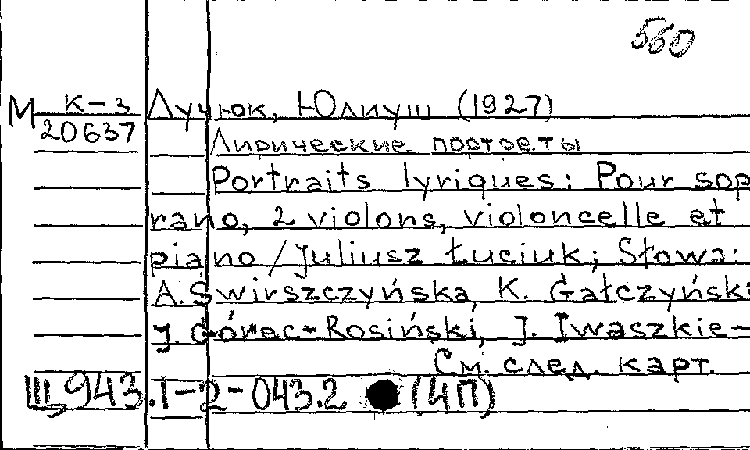 560
М К-3
20637
Лучюк, Юлиуш (1927)
Лирические портреты
Portraits lyriques: Pour sop
rano, 2 violons, violoncelle et
piano / Juliusz Łuciuk; Słowa:
A. Swirszczyńska, K. Gałczyński
J. Górec-Rosiński, J. Iwaszkie-
См. след. карт.
Щ943.1-2-043.2 (4П)